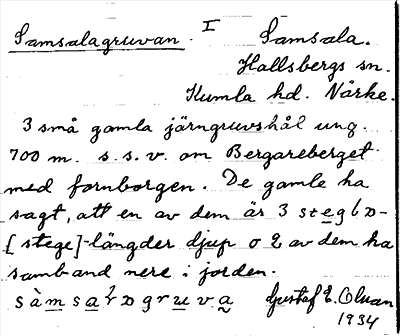 Samsalagruvan. I Samsala.
Hallsbergs sn.
Kumla hd. Närke.
3 små gamla järngruvshål ung.
700 m. s.s.v. om Bergareberget
med fornborgen. De gamle ha
sagt, att en av dem är 3 stegbo-
[stege]-längder djup o 2 av dem ha
samband nere i jorden.
Gustaf E. Olsson
1934